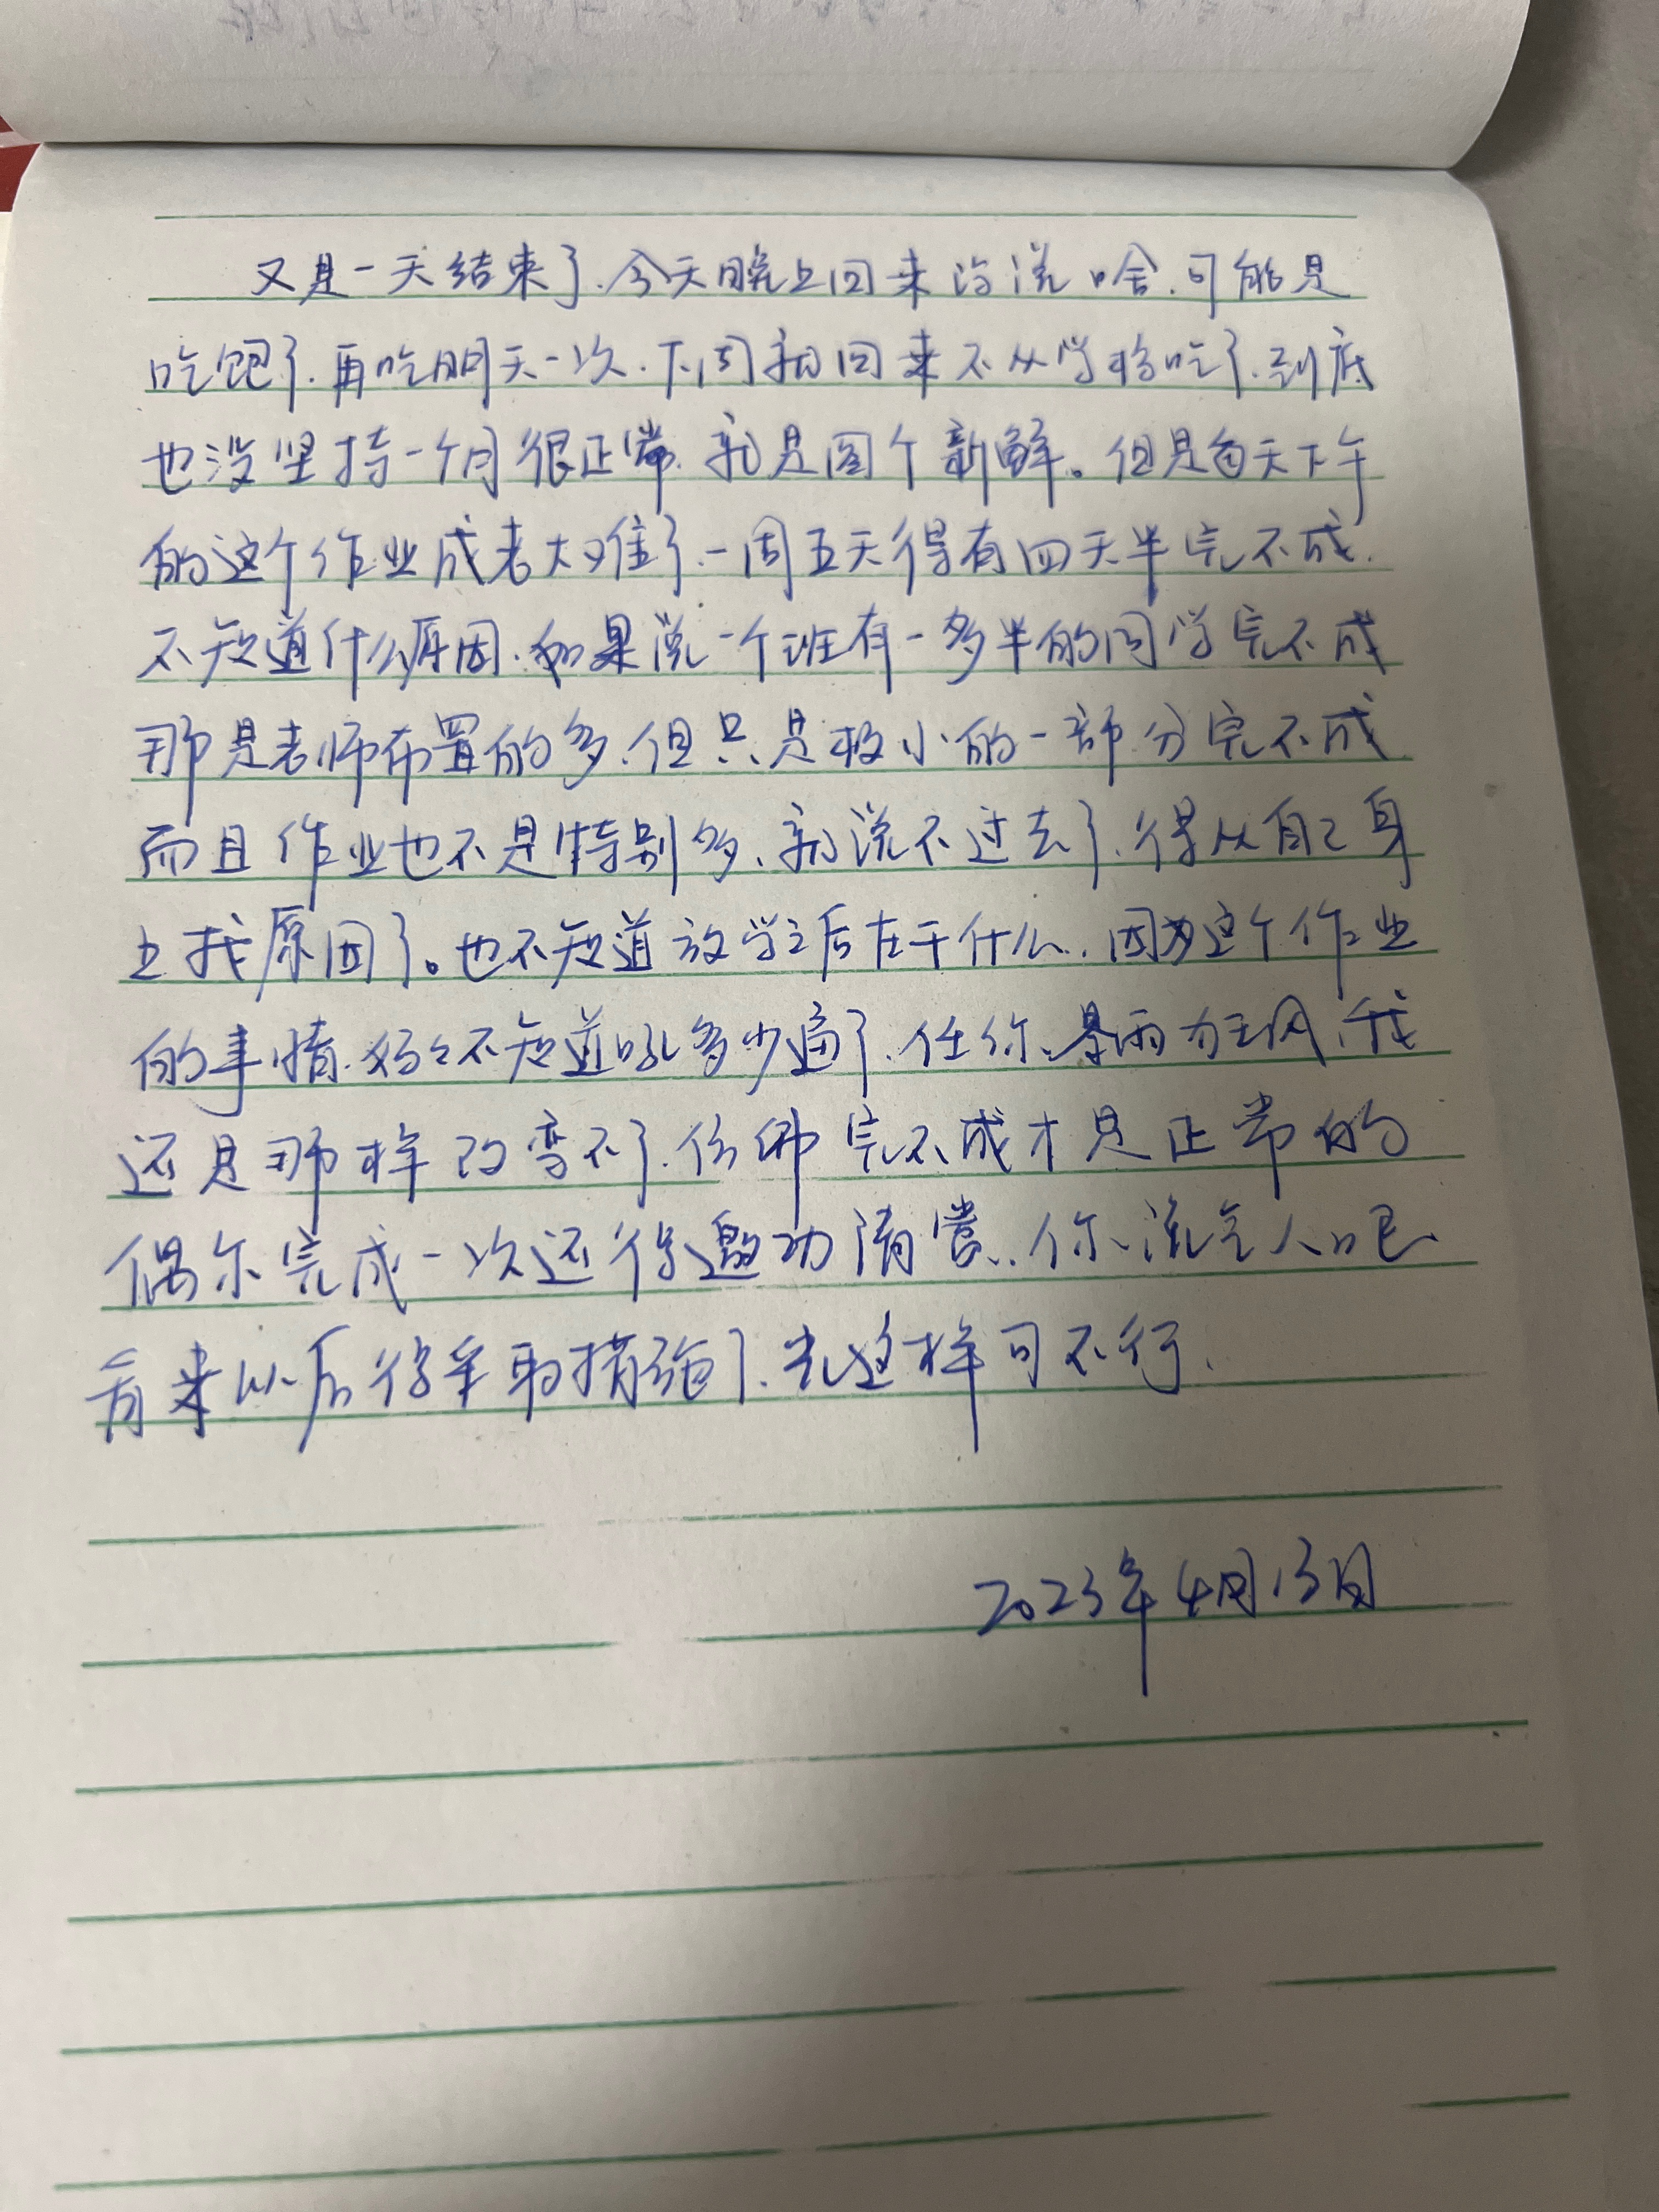 又是一天结束了.今天晚上回来没说啥.可能是
吃饱了.再吃明天一次.下周就回来不从学校吃了.到底
也没坚持一个月很正常.就是图个新鲜。但是每天下午
的这个作业成老大难了.一周五天得有四天半完不成.
不知道什么原因.如果说一个班有一多半的同学完不成
那是老师布置的多.但只是极小的一部分完不成
而且作业也不是特别多、就说不过去了.得从自己身
上找原因了。也不知道放学之后在干什么.因为这个作业
的事情.妈妈不知道吼多少遍了.任你暴雨狂风、我
还是那样改变不了.仿佛完不成才是正常的
偶尔完成一次还得邀功请赏.你说气人吧
看来以后得采取措施了.光这样可不行.
2023年4月13日